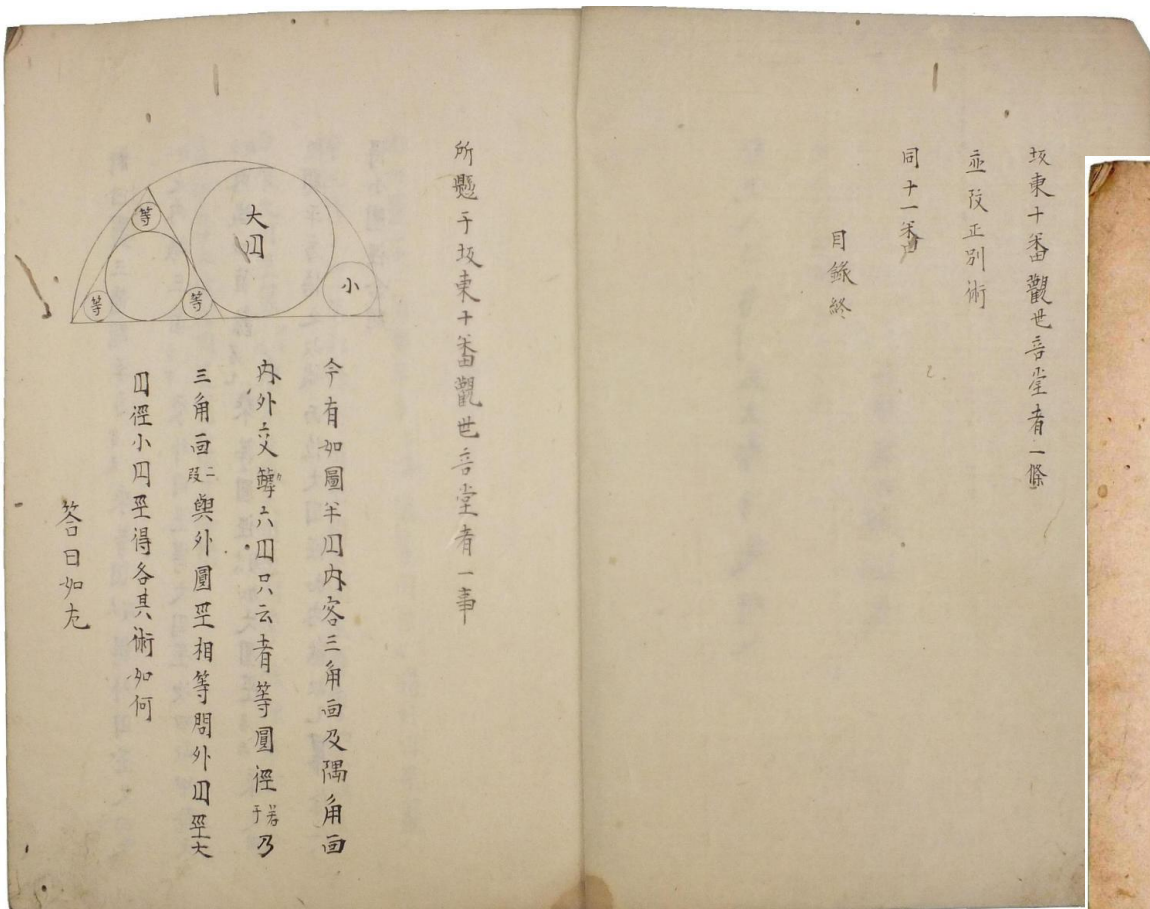 坂東十番觀世音堂者一條
並改正別術
同十一番
目錄終
所懸于坂東十番觀世音堂者一事
大円
小
等
等
等
今有如圖半円内容三角面及隅角面
内外交罅六円只云者等圓徑若干乃
三角面二段與外圓径相等問外円径大
円徑小円径得各其術如何
答曰如左